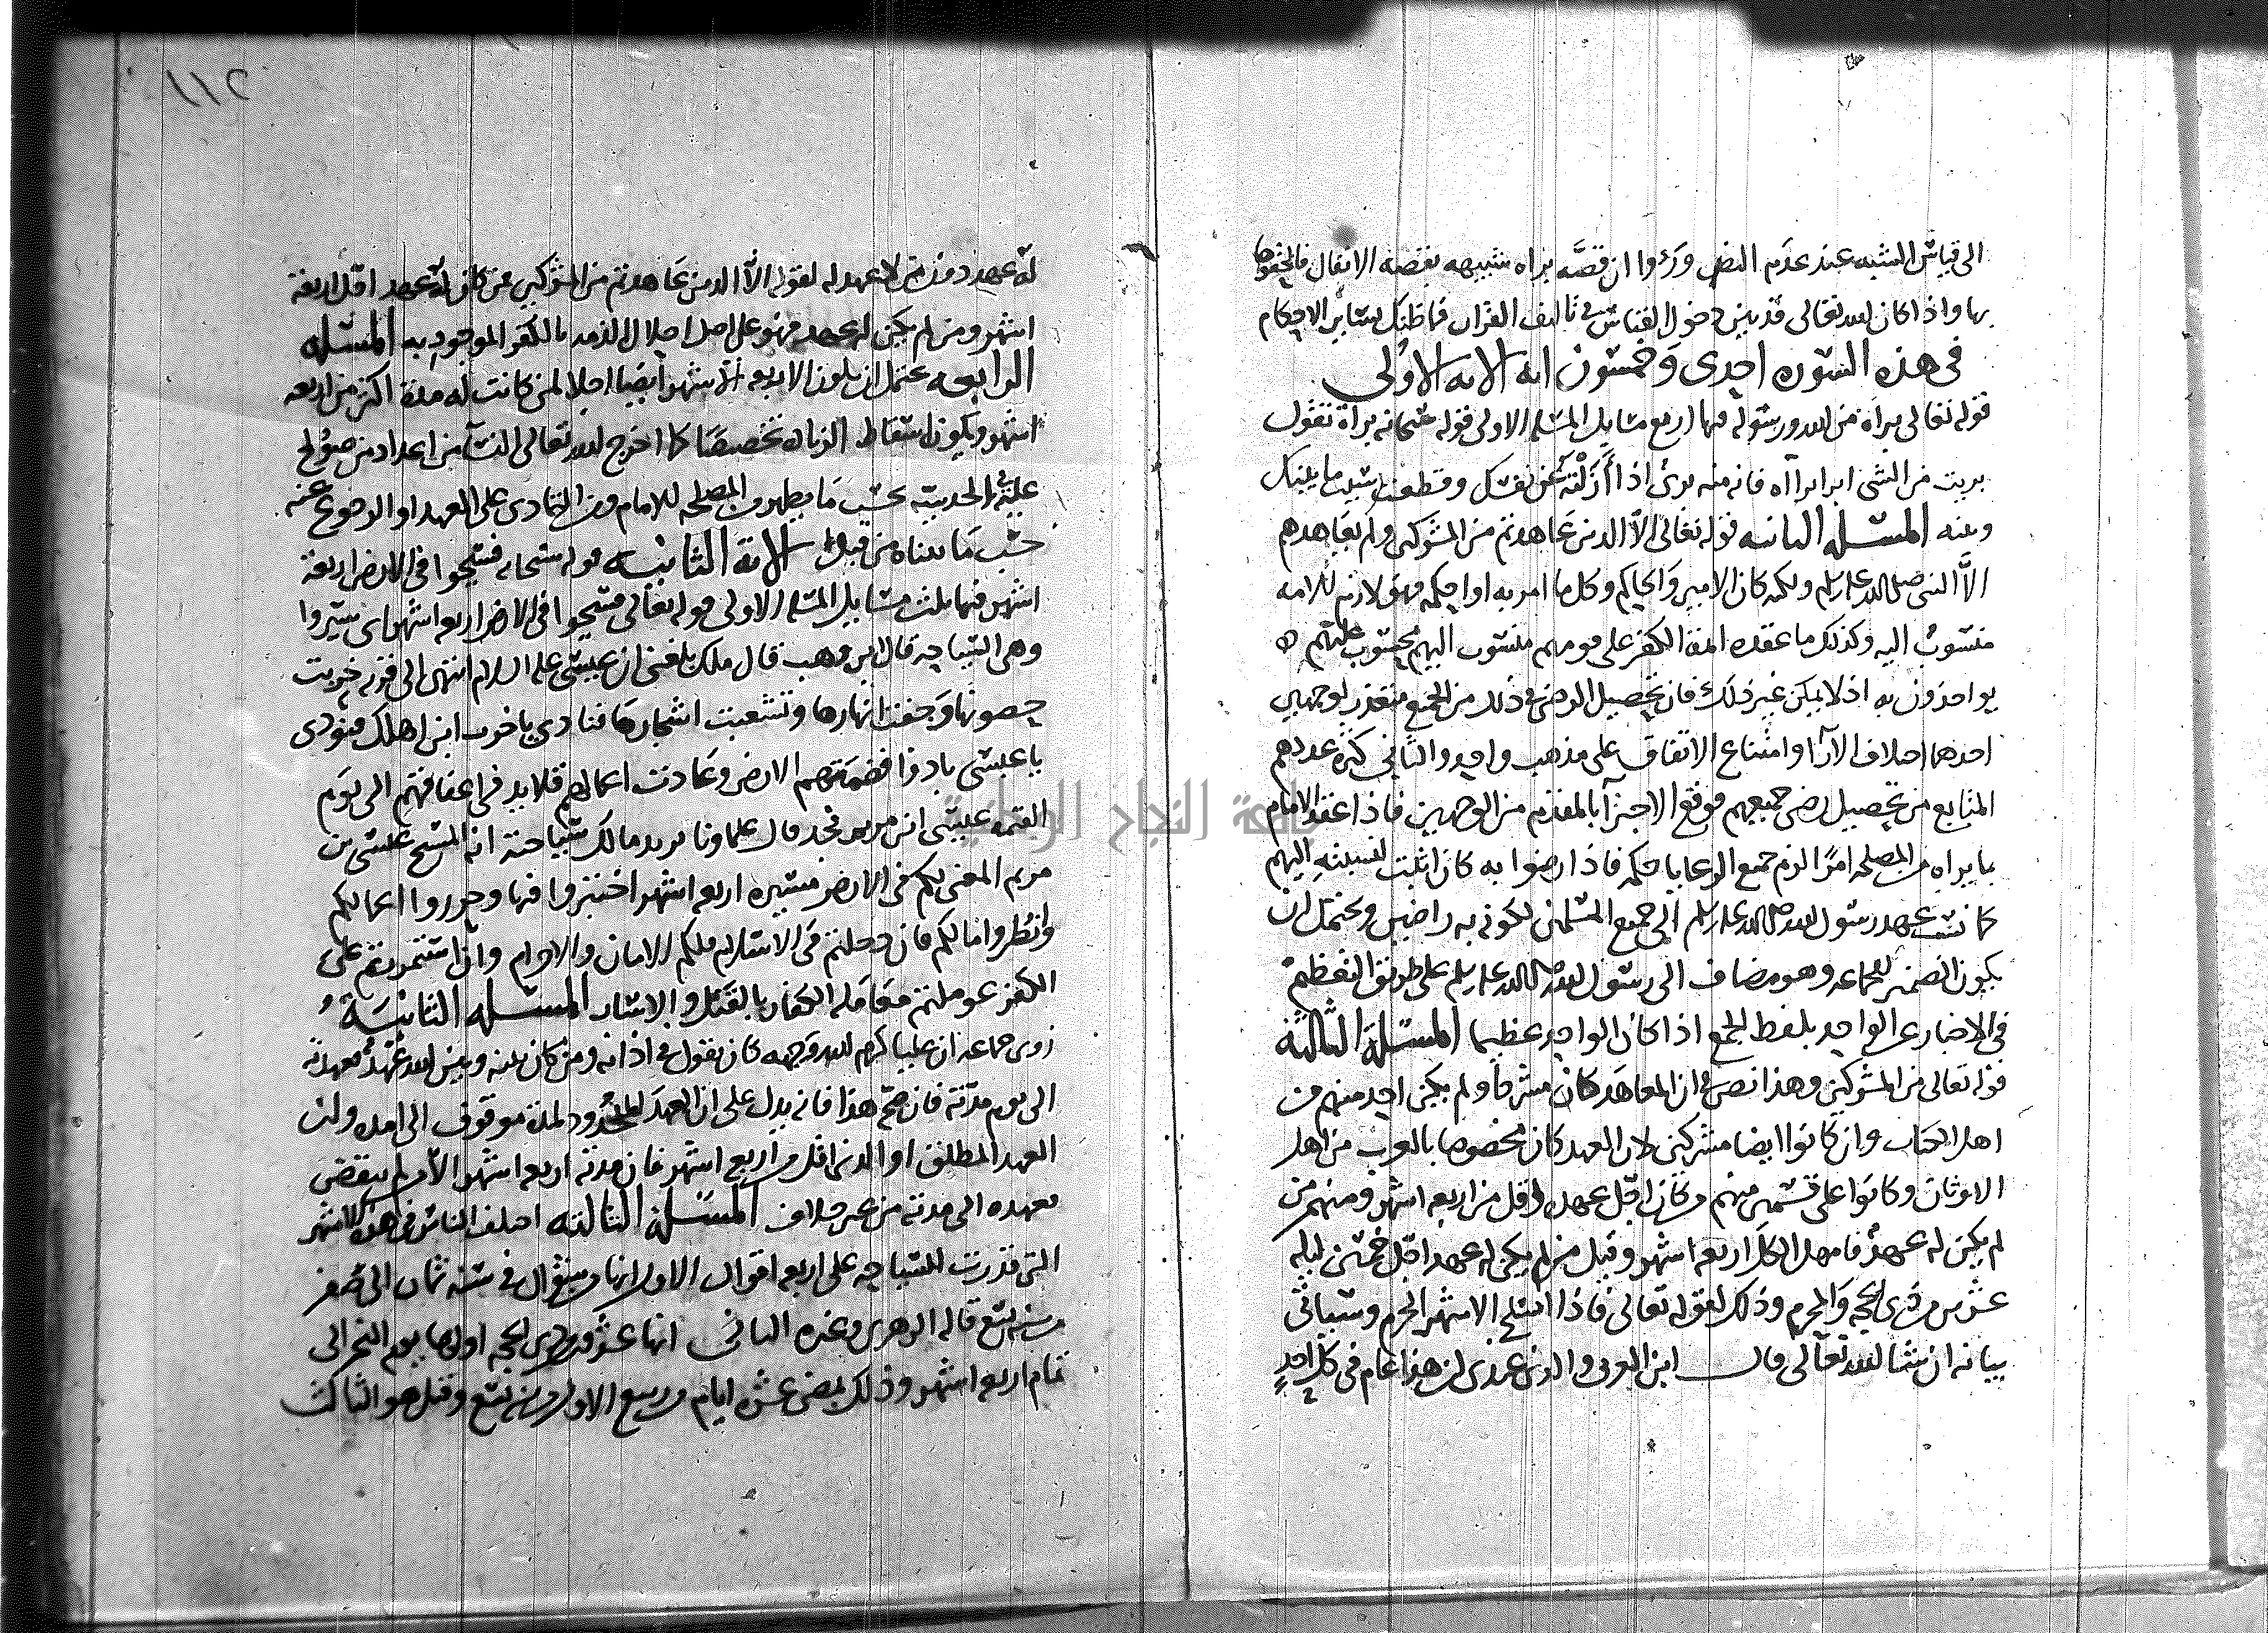 الى قياس الشبه عند عدم النص ورءوا ان قصه براه شبيهه بقصه الانفال فالحقوها
بها واذا كان الله تعالى قد بين دخول القياس في تاليف القران فما ظنك بساير الاحكام
في هذه السوره احدى وخمسون ايه الايه الاولى
قوله تعالى براه من الله ورسوله فيها اربع مسايل المسله الاولى قوله سبحانه براة تقول
بريت من الشى ابرا براآه فانه منه برئ اذا أزلته عن نفسك وقطعت سبب ما بينك
وبينه المسله الثانيه قوله تعالى الا الذين عاهدتم من المشركين ولم يعاهدهم
الا النبى صلى الله عليه وسلم ولكنه كان الامير والحاكم وكل ما امر به او احكمه فهو لازم للامه
منسوب اليه وكذلك ما عقده ايمة الكفر على قومهم منسوب اليهم محسوب عليهم
يواخذون به اذ لا يمكن غير ذلك فان تحصيل الرضى في ذلك من الجميع متعذر لوجهين
احدهما اختلاف الآرا وامتناع الاتفاق على مذهب واحد والثاني كثرة عددهم
المانع من تحصيل رضى جميعهم فوقع الاجتزآ بالمقدم من الوجهين فاذا عقد الامام
بما يراه من المصلحه امرًا لزم جميع الرعايا حكمه فاذا رضوا به كان اثبت لنسبته اليهم
كما نسب عهد رسول الله صلى الله عليه وسلم الى جميع المسلمين لكونه به راضين ويحتمل ان
يكون الضمير للجماعه وهو مضاف الى رسول الله صلى الله عليه وسلم على طريق التعظيم
في الاخبار عن الواحد بلفظ الجمع اذا كان الواحد عظيما المسلة الثالثه
قوله تعالى من المشركين وهذا نص في ان المعاهد كان مشركا ولم يكن احد منهم من
اهل الكتاب وان كانوا ايضا مشركين لان العهد كان مخصوصا بالعرب من اهل
الاوثان وكانوا على قسمين منهم من كان اجل عهده اقل من اربعه اشهر ومنهم من
لم يكن له عهد فامهل الكل اربعه اشهر وقيل من لم يكن له عهد اجل خمسين ليله
عشرين من ذي الحجه والمحرم وذلك لقوله تعالى فاذا انسلخ الاشهر الحرم وسياتي
بيانه ان شا الله تعالى قال ابن العربى والذى عندى ان هذا عام فى كل احد
له عهد دون من لا عهد له لقوله الا الذين عاهدتم من المشركين من كان له عهد اجل اربعة
اشهر ومن لم يكن له عهد فهو على اصل احلال الدم بالكفر الموجود به المسله
الرابعه يحتمل ان يكون الاربعه الاشهر ايضا اجلا لمن كانت له مدة اكثر من اربعه
اشهر ويكون اسقاط الزياده تخصيصا كما اخرج الله تعالى النسآ من اعداد من صولح
عليه في الحديبيه بحسب ما يظهر من المصلحه للامام من التمادى على العهد او الرجوع عنه
حسب ما بيناه من قبل الايه الثانيه قوله سبحانه فسيحوا في الارض اربعة
اشهر فيها ثلث مسايل المسله الاولى قوله تعالى فسيحوا في الارض اربعه اشهر اى سيروا
وهى السياحه قال ابن وهب قال ملك بلغنى ان عيسى عليه السلام انتهى الى قريه خربت
حصونها وجفت انهارها وتشعبت اشجارها فنادى يا خرب اين اهلك فنودى
يا عيسى بادوا فضمتهم الارض وعادت اعمالهم قلايد فى اعناقهم الى يوم
القيمه عيسى ابن مريم فجد قال علماونا يريد مالك سياحته انه المسيح عيسى بن
مريم المعنى لكم فى الارض مسيره اربعه اشهر اختبروا فيها وحرروا اعمالكم
وانظروا مالكم فان دخلتم فى الاسلام فلكم الامان والاحرام وان استمررتم على
الكفر عوملتم معامله الكفار بالقتل والاسار المسله الثانيه
روى جماعه ان عليا كرم الله وجهه كان يقول في اذانه ومن كان بينه وبين الله عهد فعهدته
الى يوم مدته فان صح هذا فانه يدل على ان العهد المحدود لمدة موقوف الى امده وان
العهد المطلق او الذى اقل من اربع اشهر فان مدته اربعه اشهر الا من لم ينقض
بعهده الى مدته من غير خلاف المسله الثالثه اختلف الناس في هذه الاشهر
التى قدرت للسياحه على اربعه اقوال الاول انها من شوال في سنه ثمان الى صفر
من سنه تسع قاله الزهرى وغيره الثانى انها عشرون من ذى الحجه اولها يوم النحر الى
تمام اربعه اشهر وذلك بمضى عشره ايام من ربيع الاول من سنه تسع وقيل هو الثالث